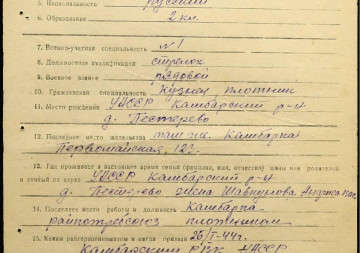 5. Национальность русский
6. Образование 2 кл.
7. Военно-учетная специальность №1
8. Должностная квалификация стрелок
9. Военное звание рядовой
10. Гражданская специальность Кузнец, плотник
11. Место рождения УАССР Камбарский р-н
д. Нестерево
12. Последнее место жительства там же. Камбарка
Первомайская, 122.
13. Где проживает в настоящее время семья (фамилия, имя, отчество) жены или родителей
и личный их адрес УАССР Камбарский р-н
д. Нестерево жена Шавкунова
14. Последнее место работы и должность Камбарка
райпотребсоюз плотником
15. Каким райвоенкоматом и когда призван 26/I-44г.
Камбарским РВК УАССР